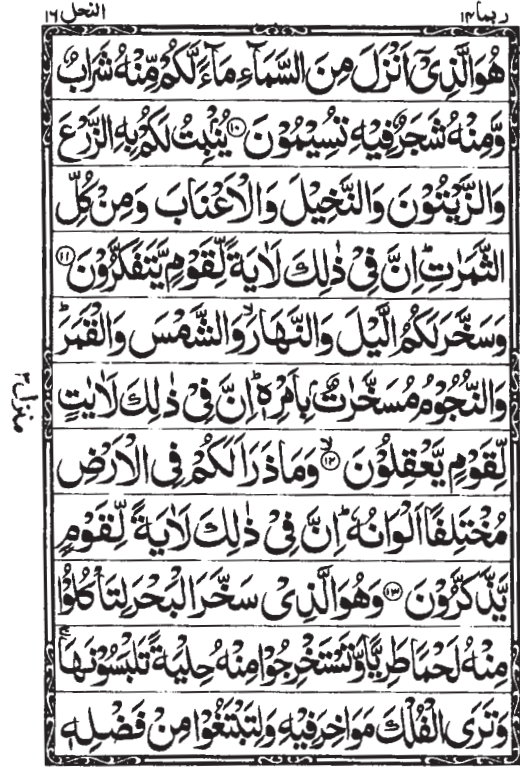 ربما ۱۴
النحل ۱۶
هُوَ الَّذِىْۤ اَنْزَلَ مِنَ السَّمَآءِ مَآءً لَّكُمْ مِّنْهُ شَرَابٌ
وَّمِنْهُ شَجَرٌ فِيْهِ تُسِيْمُوْنَ ۝۱۰ يُنْۢبِتُ لَكُمْ بِهِ الزَّرْعَ
وَالزَّيْتُوْنَ وَالنَّخِيْلَ وَالْاَعْنَابَ وَمِنْ كُلِّ
الثَّمَرٰتِ ؕ اِنَّ فِىْ ذٰلِكَ لَاٰيَةً لِّقَوْمٍ يَّتَفَكَّرُوْنَ ۝۱۱
وَسَخَّرَ لَكُمُ الَّيْلَ وَالنَّهَارَ ۙ وَالشَّمْسَ وَالْقَمَرَ ؕ
وَالنُّجُوْمُ مُسَخَّرٰتٌۢ بِاَمْرِهٖ ؕ اِنَّ فِىْ ذٰلِكَ لَاٰيٰتٍ
لِّقَوْمٍ يَّعْقِلُوْنَ ۝۱۲ ۙ وَمَا ذَرَاَ لَكُمْ فِى الْاَرْضِ
مُخْتَلِفًا اَلْوَانُهٗ ؕ اِنَّ فِىْ ذٰلِكَ لَاٰيَةً لِّقَوْمٍ
يَّذَّكَّرُوْنَ ۝۱۳ وَهُوَ الَّذِىْ سَخَّرَ الْبَحْرَ لِتَاْكُلُوْا
مِنْهُ لَحْمًا طَرِيًّا وَّتَسْتَخْرِجُوْا مِنْهُ حِلْيَةً تَلْبَسُوْنَهَا ۚ
وَتَرَى الْفُلْكَ مَوَاخِرَ فِيْهِ وَلِتَبْتَغُوْا مِنْ فَضْلِهٖ
منزل ۳